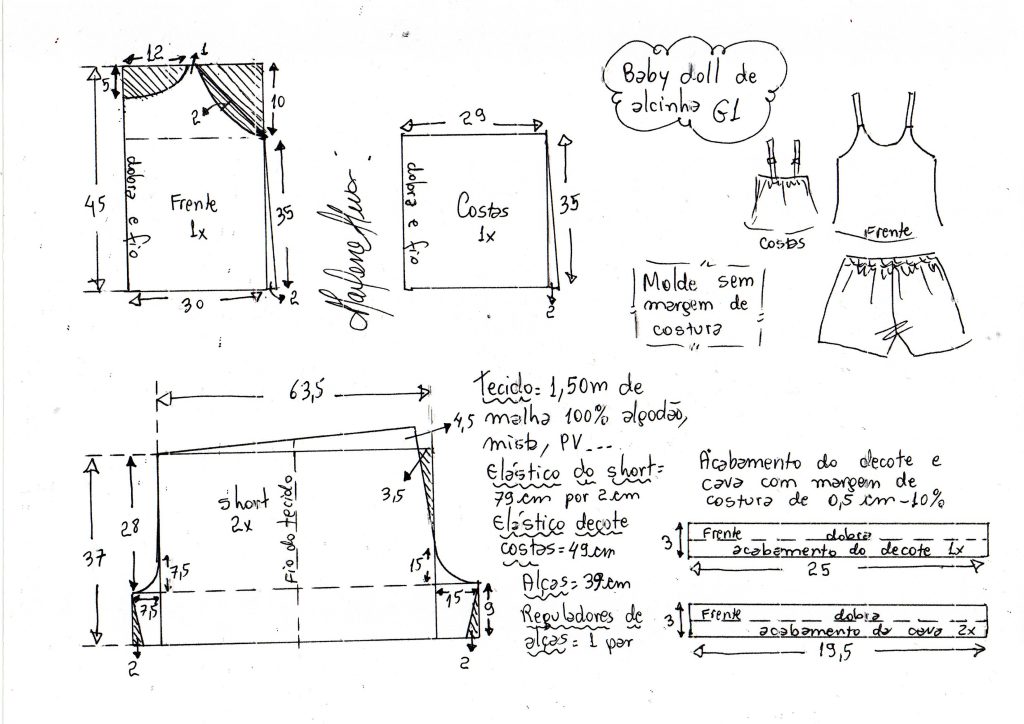 Baby doll de
alcinha G1
12
1
5
10
2
45
dobra e fio
Frente
1x
35
30
2
29
dobra e fio
Costas
1x
35
2
Costas
Frente
Molde sem
margem de
costura
63,5
4,5
3,5
37
28
short
2x
Fio do tecido
7,5
7,5
15
15
9
2
2
Tecido= 1,50m de
malha 100% algodão,
mista, PV...
Elástico do short=
79 cm por 2 cm
Elástico decote
costas= 49 cm
Alças= 39 cm
Reguladores de
alças= 1 par
Acabamento do decote e
cava com margem de
costura de 0,5 cm -10%
3
Frente dobra
acabamento do decote 1x
25
3
Frente dobra
acabamento da cava 2x
19,5